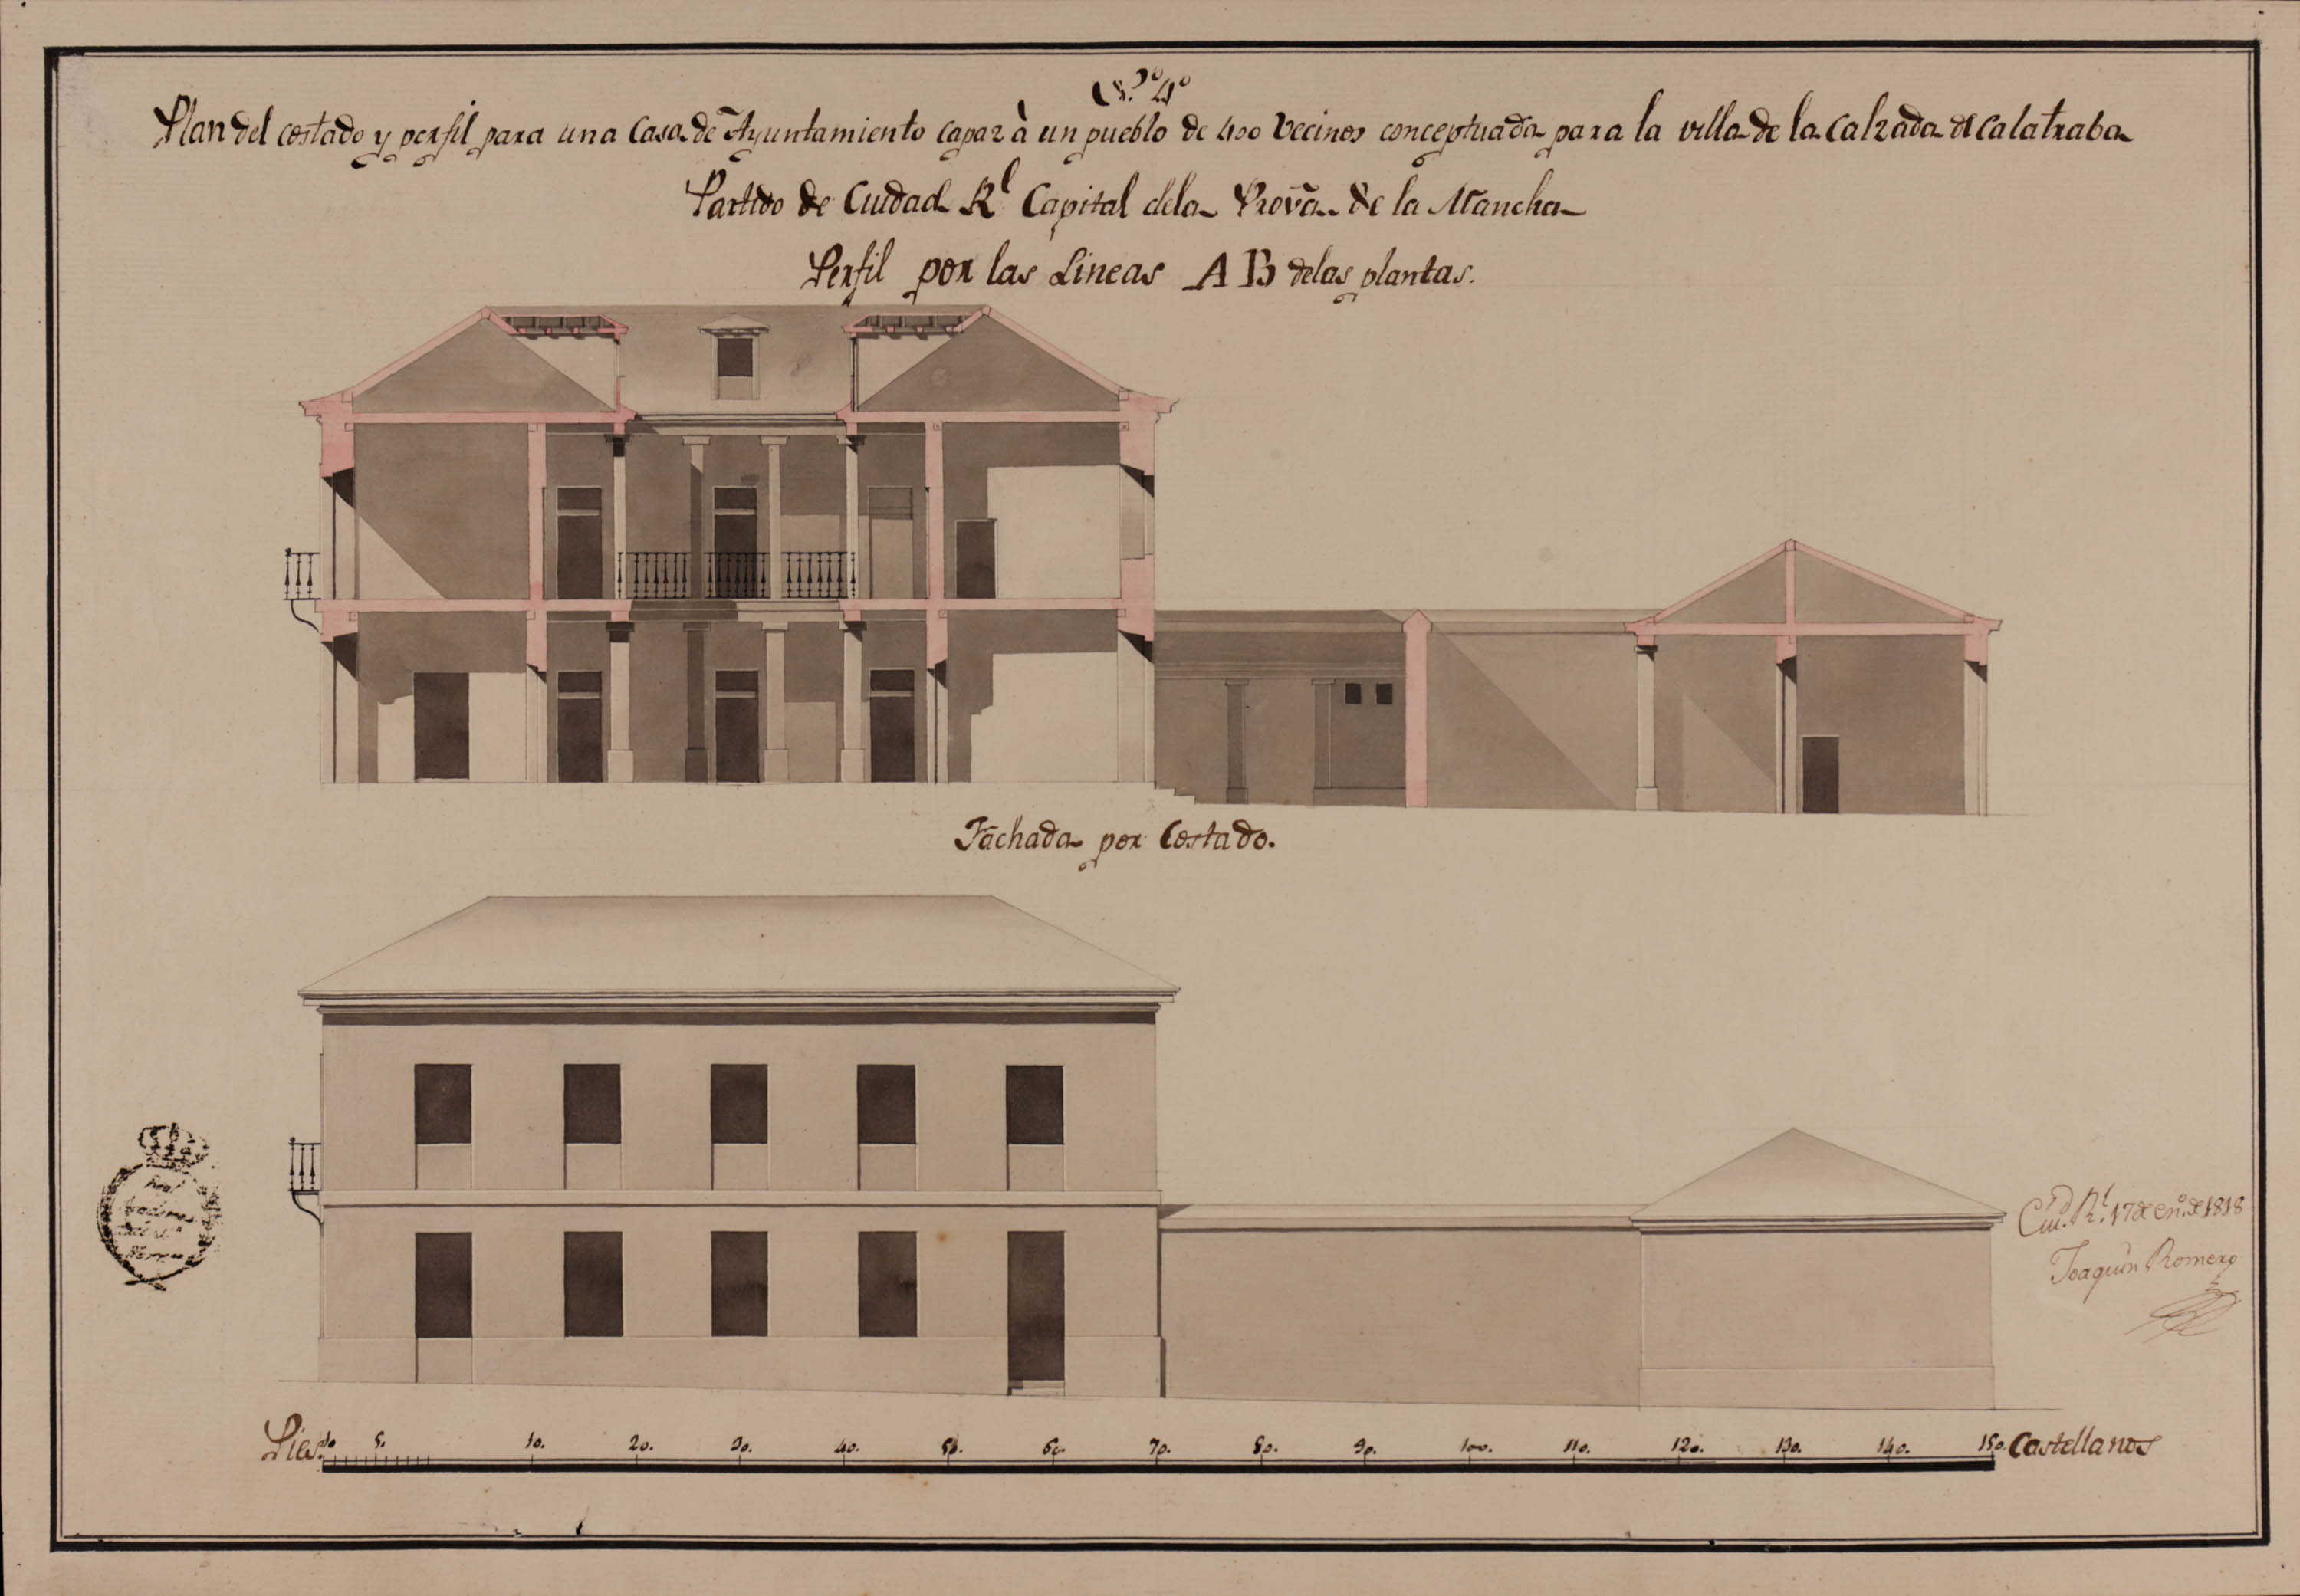 N.º 4º
Plan del costado y perfil para una Casa de Ayuntamiento capaz à un pueblo de 400 Vecinos conceptuada para la villa de la Calzada de Calatraba
Partido de Ciudad Rl Capital dela Provª. de la Mancha
Perfil por las Lineas A B delas plantas.
Fachada por Costado.
Real
Ciud. Rl. 17 de enº. de 1818
Joaquin Romero
Pies. 10 5. 10. 20. 30. 40. 50. 60. 70. 80. 90. 100. 110. 120. 130. 140. 150. Castellanos